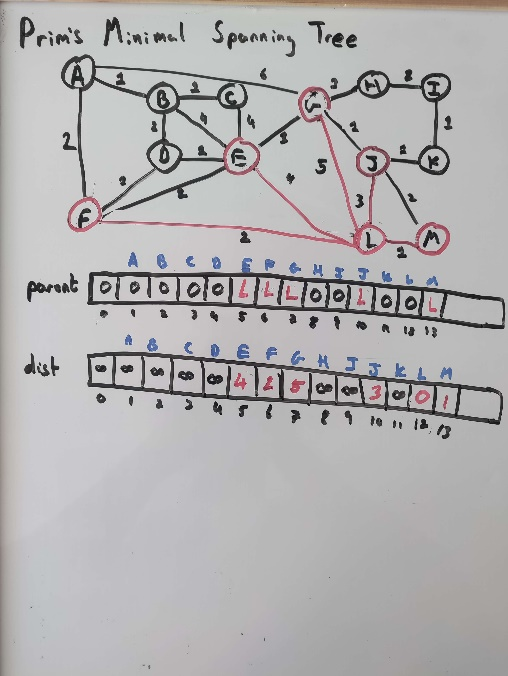 Prim's Minimal Spanning Tree
A 1 6 G 3 H 2 I
B 1 C
2 4 4 1 5 1 1
D 2 E J 1 K
2 2 4 3 2
F 2 L 1 M
A B C D E F G H I J K L M
parent 0 0 0 0 0 L L L 0 0 L 0 0 L
0 1 2 3 4 5 6 7 8 9 10 11 12 13
A B C D E F G H I J K L M
dist ∞ ∞ ∞ ∞ ∞ 4 2 5 ∞ ∞ 3 ∞ 0 1
0 1 2 3 4 5 6 7 8 9 10 11 12 13